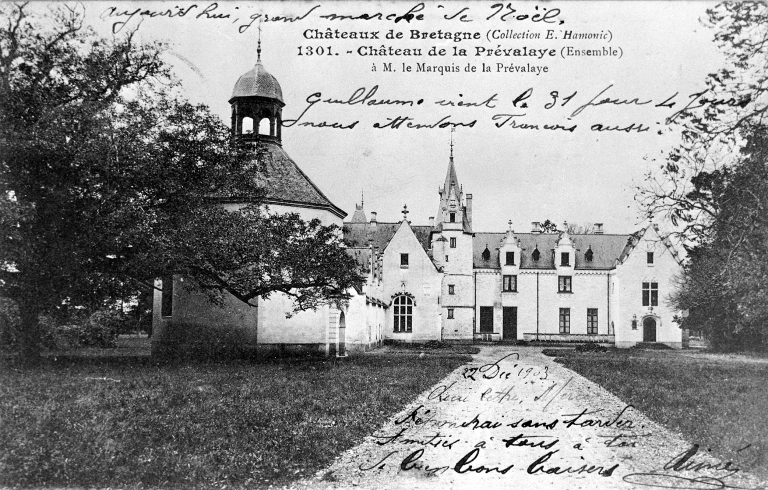 aujourd'hui, grand marché de Noël.
Châteaux de Bretagne (Collection E. Hamonic)
1301. - Château de la Prévalaye (Ensemble)
à M. le Marquis de la Prévalaye
Guillaume vient le 31 pour 4 jours
nous attendons François aussi
22 Déc 1903
lettre, Merci
sans tarder
Amitiés à tous à toi
de bien bons baisers
Aimée